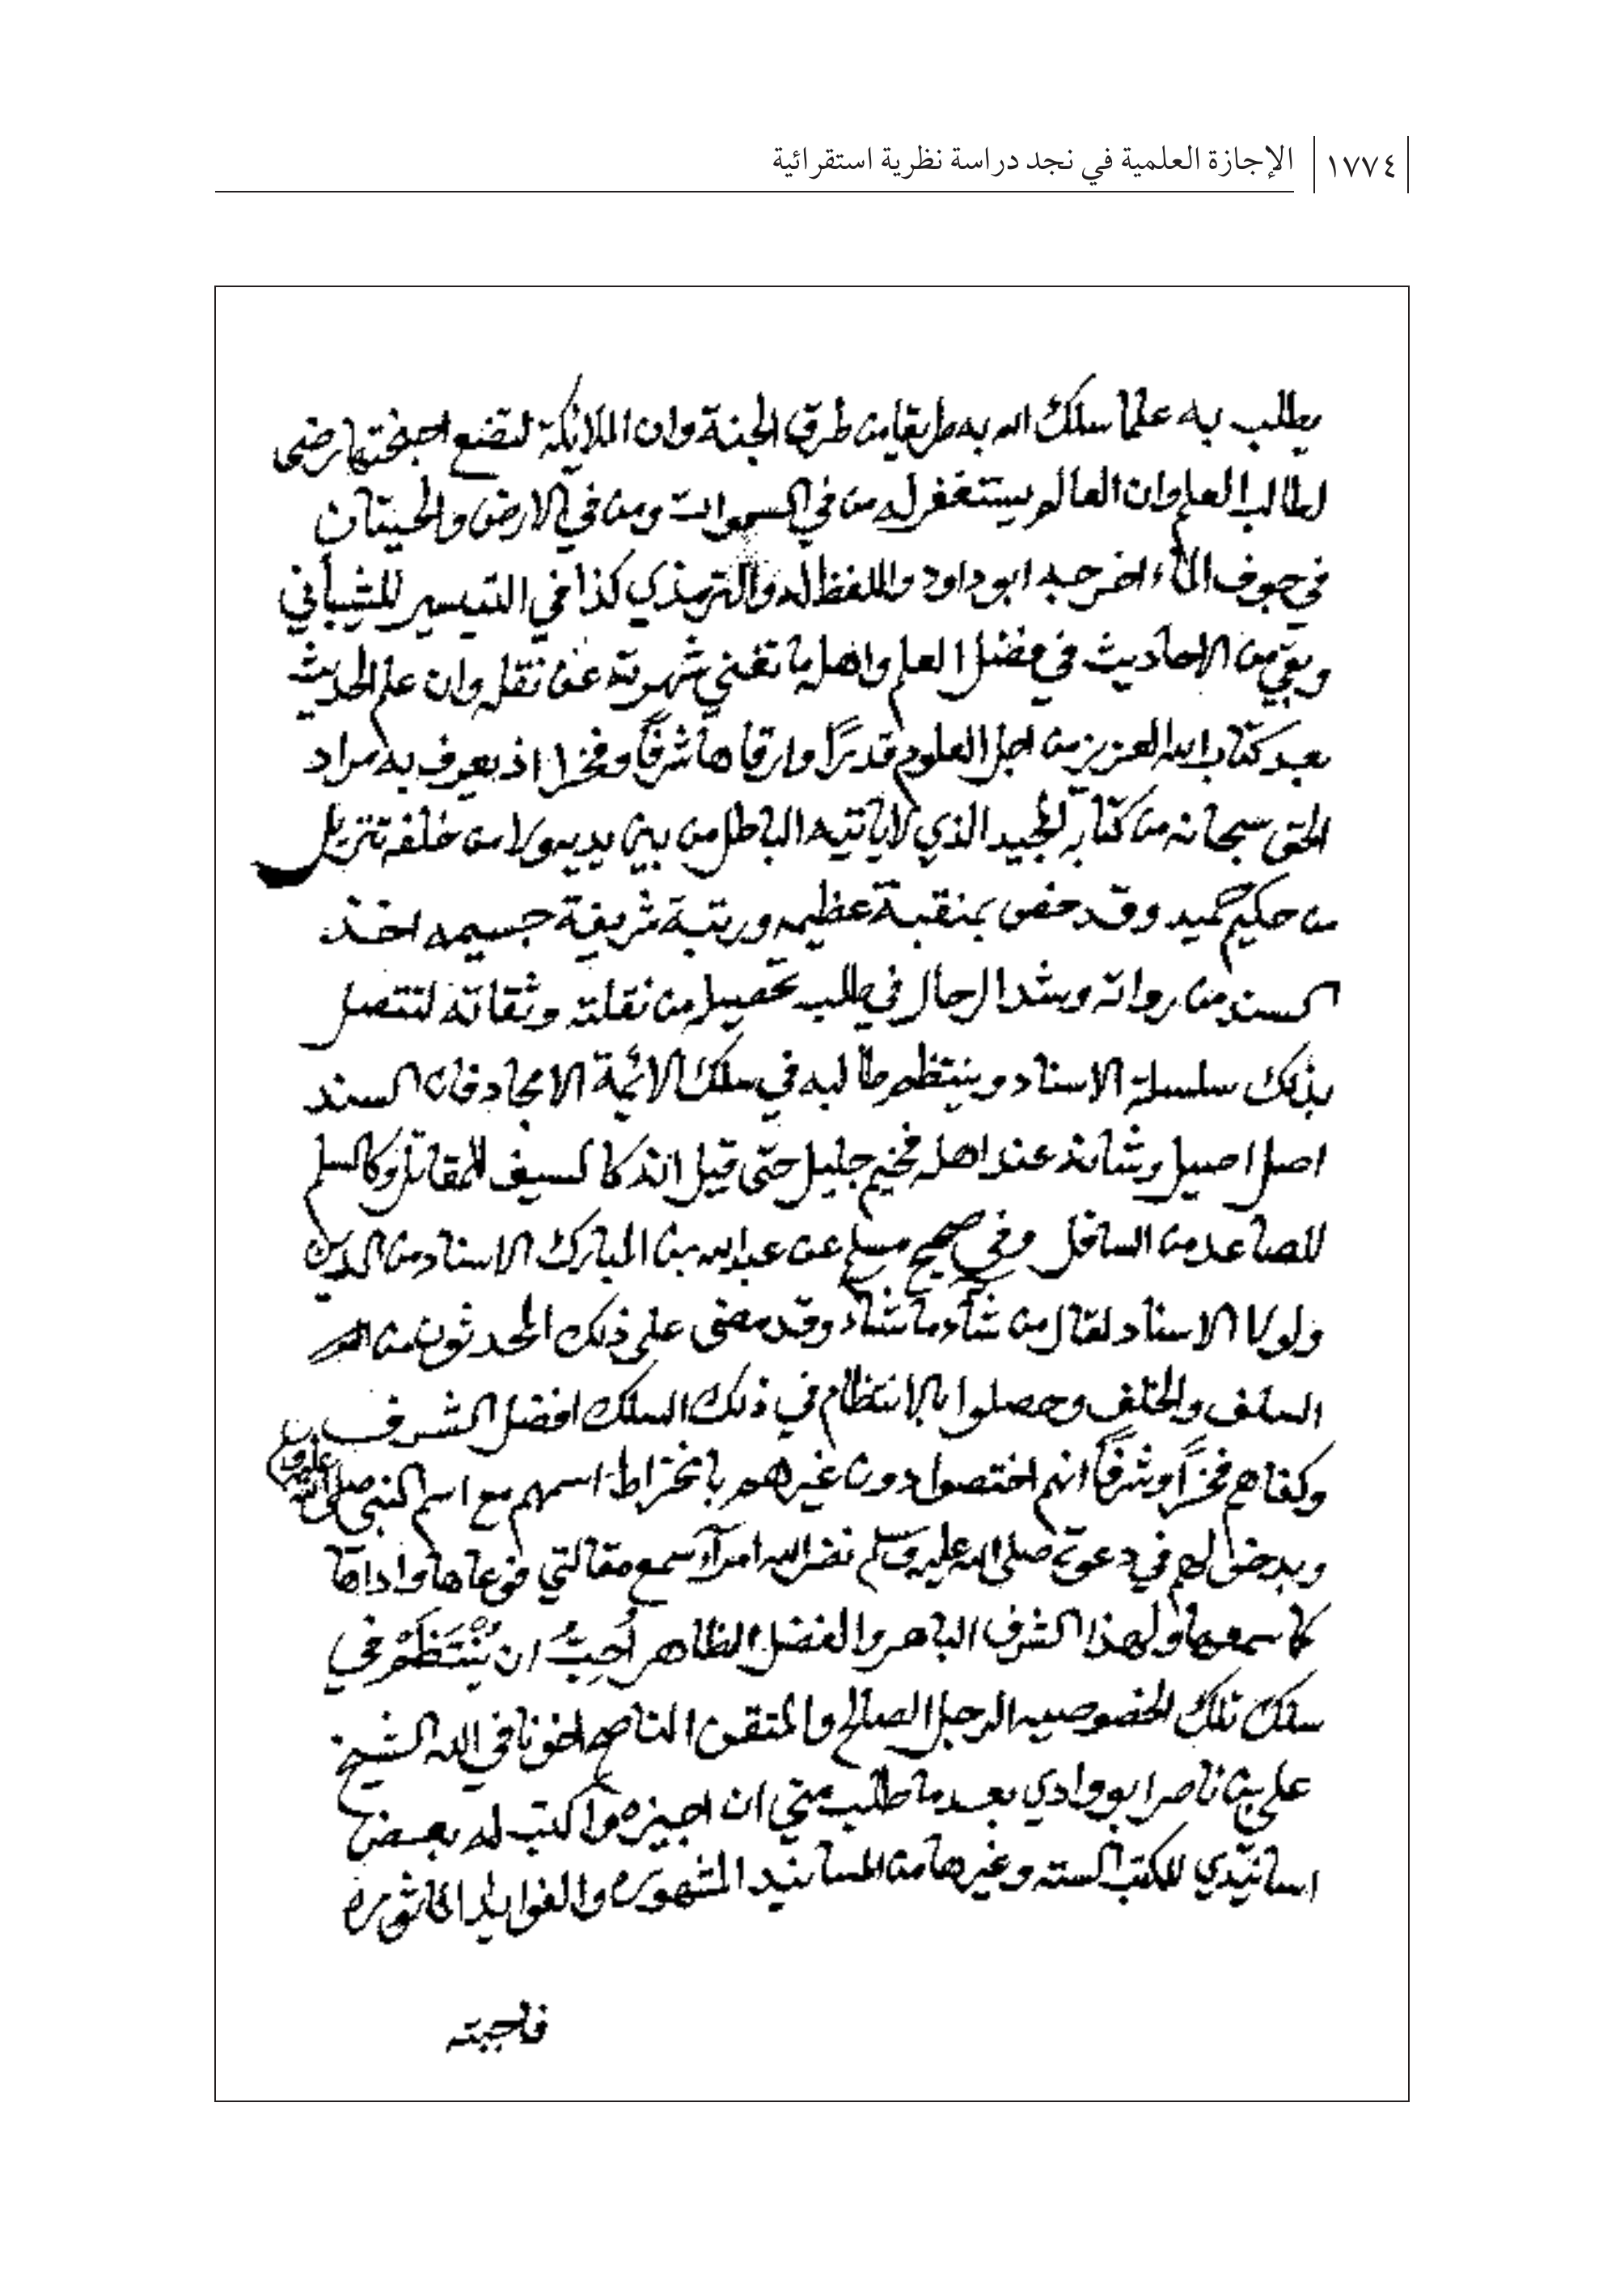 ١٧٧٤ الإجازة العلمية في نجد دراسة نظرية استقرائية
يطلب به علما سلك الله به طريقا من طرق الجنة وان الملائكة لتضع اجنحتها رضى
لطالب العلم وان العالم ليستغفر له من في السموات ومن في الارض والحيتان
في جوف الماء اخرجه ابو داود واللفظ له والترمذي كذا في التيسير للشيباني
وبقي من الاحاديث في فضل العلم واهله ما تغني شهرته عن نقله وان علم الحديث
بعد كتاب الله العزيز من اجل العلوم قدرًا وارقاها شرفًا وفخرا اذ يعرف به مراد
الحق سبحانه من كتابه المجيد الذي لا ياتيه الباطل من بين يديه ولا من خلفه تنزيل
من حكيم حميد وقد خص بمنقبة عظيمه ورتبة شريفة جسيمه اخذ
السند من رواته وشد الرحال في طلب تحصيله من نقلته وثقاته لتتصل
بذلك سلسلة الاسناد وينتظم طالبه في سلك الائمة الامجاد فان السند
اصل اصيل وشانه عند اهله فخيم جليل حتى قيل انه كالسيف للمقاتل وكالسلم
للصاعد من السافل وفي صحيح مسلم عن عبد الله بن المبارك الاسناد من الدين
ولولا الاسناد لقال من شاء ما شاء وقد مضى على ذلك المحدثون من
السلف والخلف وحصلوا بالانتظام في ذلك السلك افضل الشرف
وكفاهم فخرًا وشرفًا انهم اختصوا دون غيرهم بانخراط اسمهم مع اسم النبي صلى الله عليه وسلم
ويدخل لهم في دعوته صلى الله عليه وسلم نضر الله امرأ سمع مقالتي فوعاها واداها
كما سمعها ولهذا الشرف الباهر والفضل الظاهر أحب ان يَنْتَظِمَ في
سلك تلك الخصوصيه الرجل الصالح والمتقن الناصح اخونا في الله الشيخ
علي بن ناصر ابو وادي بعد ما طلب مني ان اجيزه واكتب له بعض
اسانيدي للكتب السته وغيرها من المسانيد المشهوره والفوايد الماثوره
فاجبته